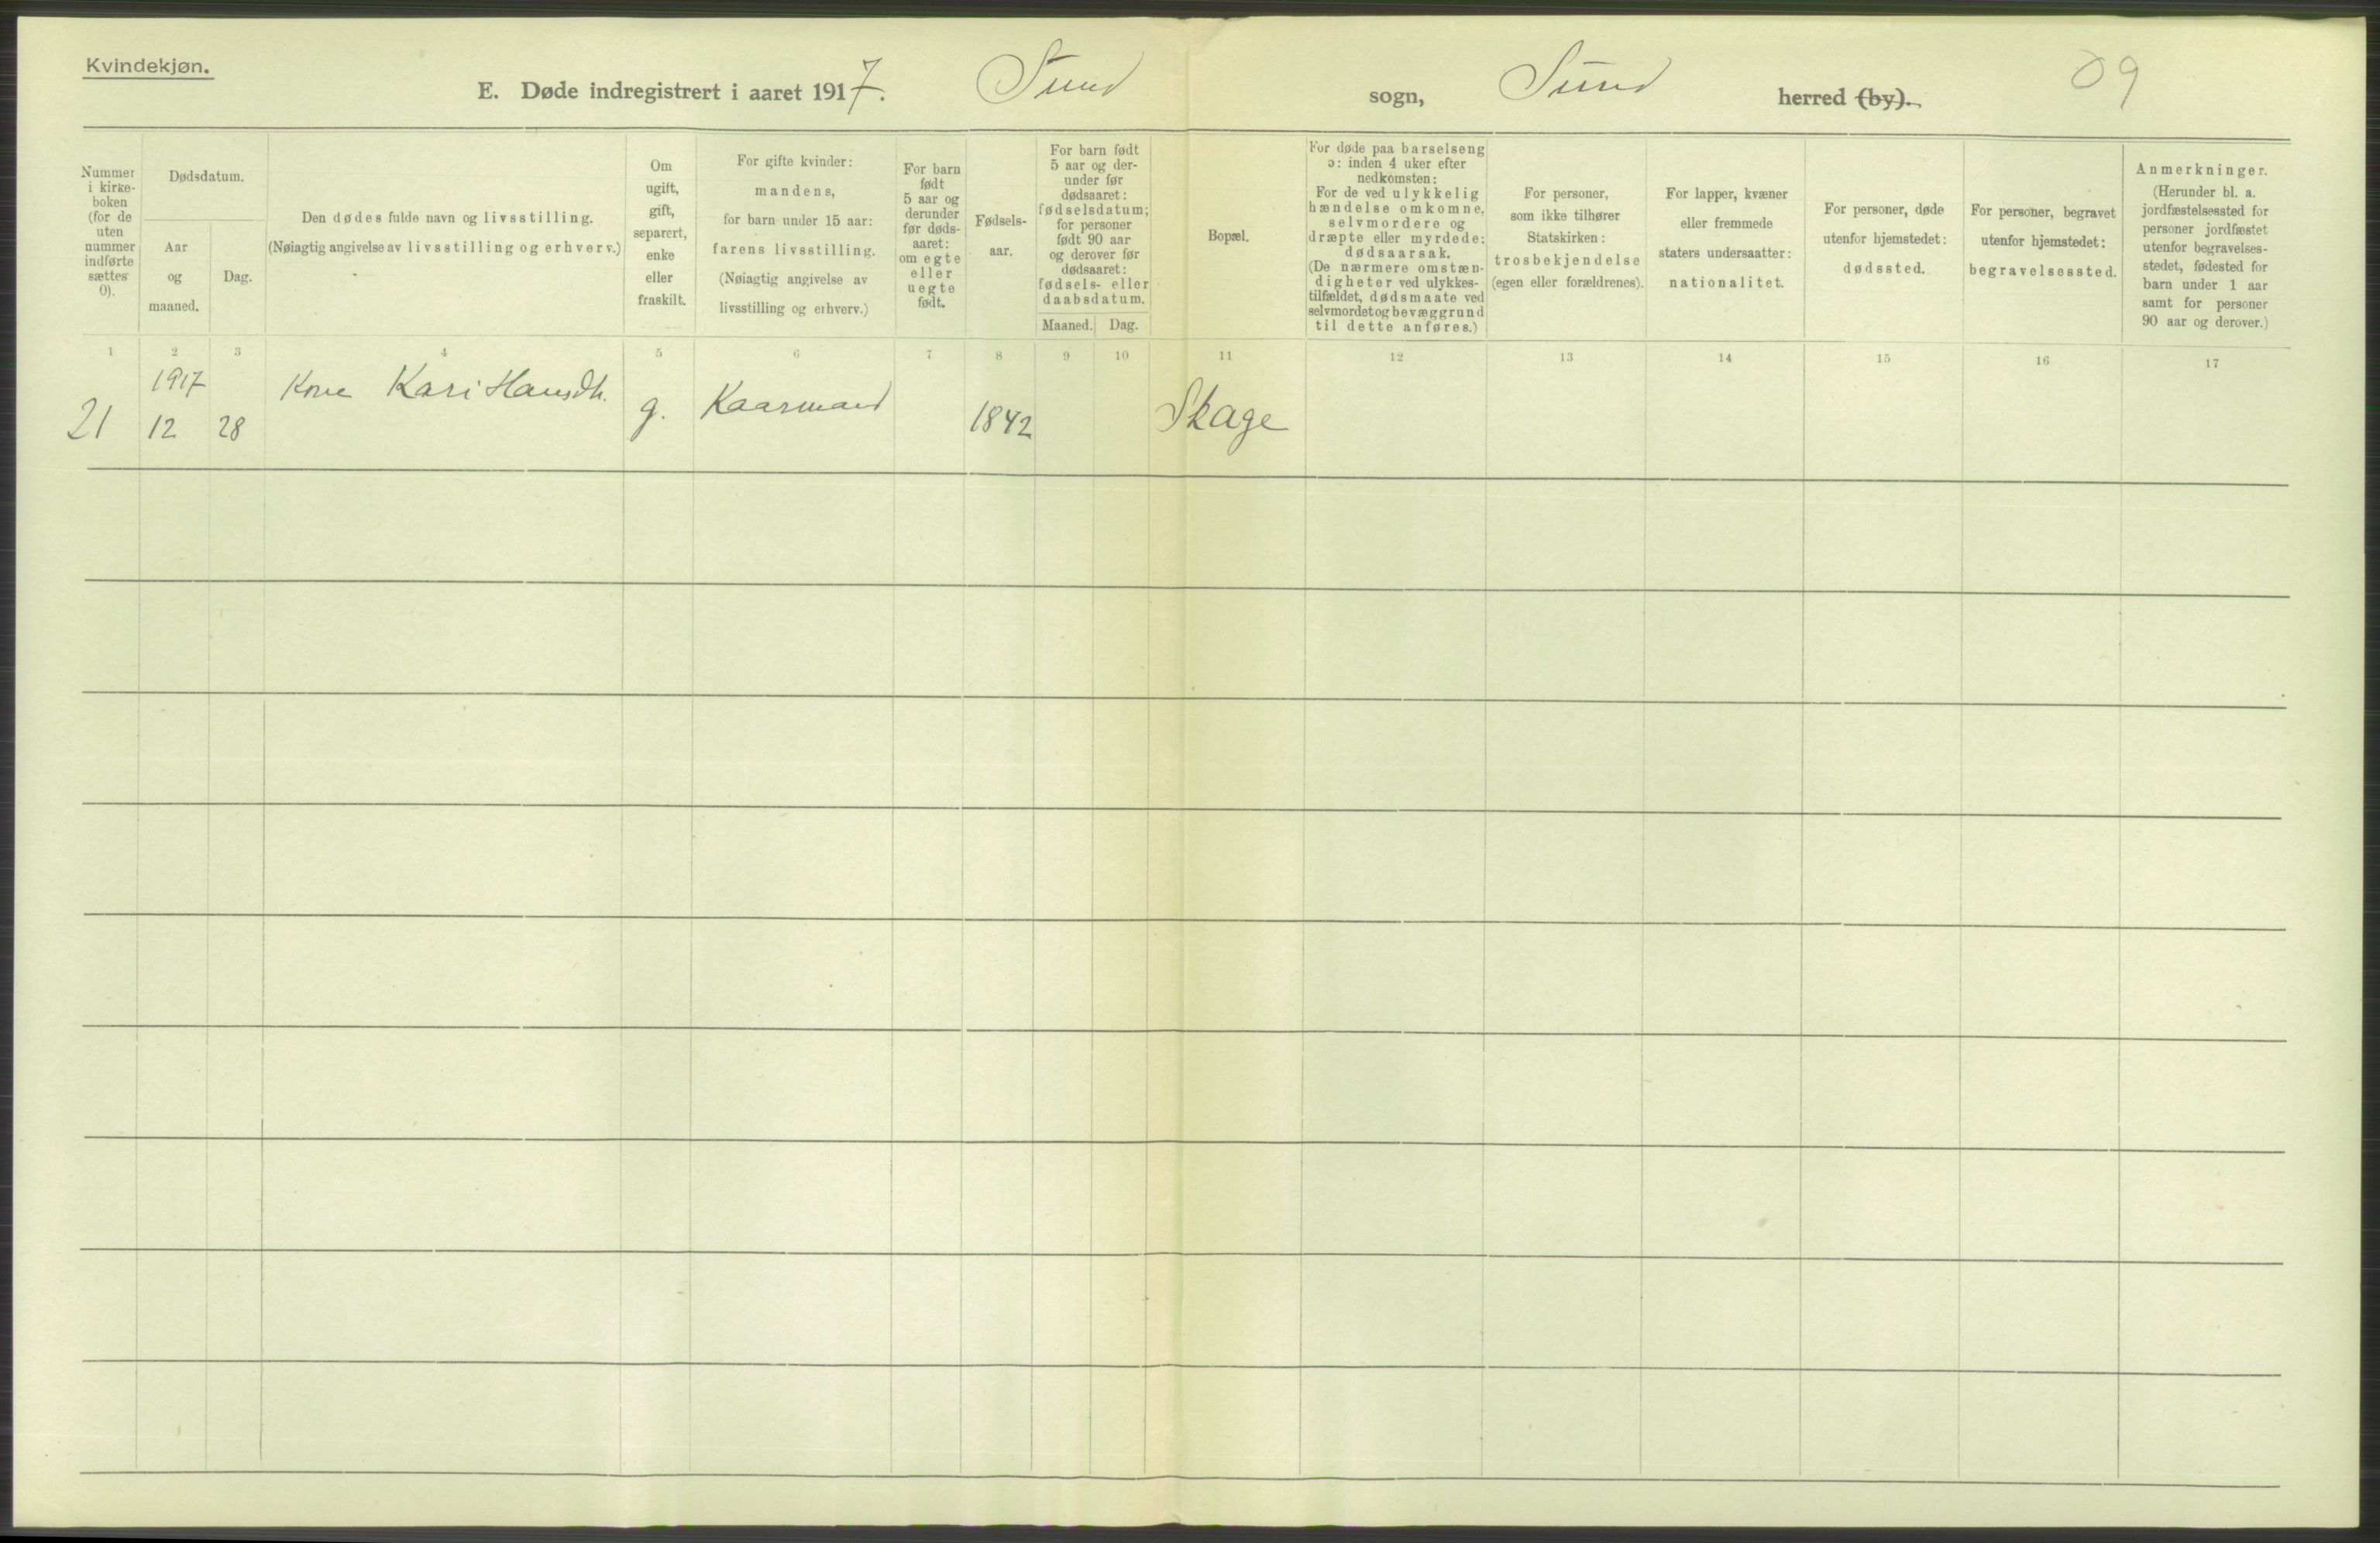 Kvindekjøn.
E. Døde indregistrert i aaret 1917. Sund sogn, Sund herred (by). 09
Nummer
i kirke-
boken
(for de
uten
nummer
indførte
sættes
0).
Dødsdatum.
Aar
og
maaned.
Dag.
Den dødes fulde navn og livsstilling.
(Nøiagtig angivelse av livsstilling og erhverv.)
Om
ugift,
gift,
separert,
enke
eller
fraskilt.
For gifte kvinder:
mandens,
for barn under 15 aar:
farens livsstilling.
(Nøiagtig angivelse av
livsstilling og erhverv.)
For barn
født
5 aar og
derunder
før døds-
aaret:
om egte
eller
uegte
født.
Fødsels-
aar.
For barn født
5 aar og der-
under før
dødsaaret:
fødselsdatum;
for personer
født 90 aar
og derover før
dødsaaret:
fødsels- eller
daabsdatum.
Maaned. Dag.
Bopæl.
For døde paa barselseng
ɔ: inden 4 uker efter
nedkomsten:
For de ved ulykkelig
hændelse omkomne,
selvmordere og
dræpte eller myrdede:
dødsaarsak.
(De nærmere omstæn-
digheter ved ulykkes-
tilfældet, dødsmaate ved
selvmordet og bevæggrund
til dette anføres.)
For personer,
som ikke tilhører
Statskirken:
trosbekjendelse
(egen eller forældrenes).
For lapper, kvæner
eller fremmede
staters undersaatter:
nationalitet.
For personer, døde
utenfor hjemstedet:
dødssted.
For personer, begravet
utenfor hjemstedet:
begravelsessted.
Anmerkninger.
(Herunder bl. a.
jordfæstelsessted for
personer jordfæstet
utenfor begravelses-
stedet, fødested for
barn under 1 aar
samt for personer
90 aar og derover.)
1 2 3 4 5 6 7 8 9 10 11 12 13 14 15 16 17
1917
21 12 28 Kone Kari Hansdtr. g. Kaarmand 1842 Skage